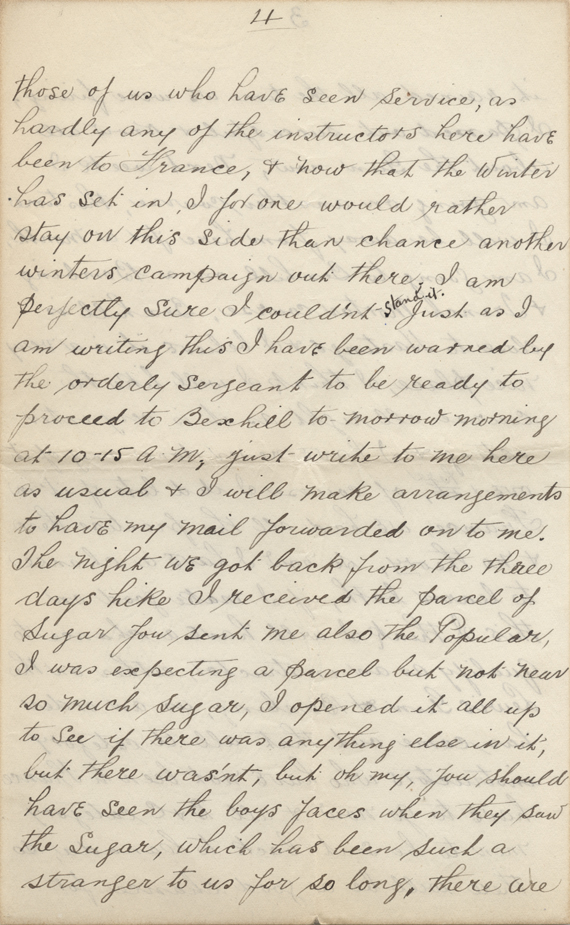 4
those of us who have seen service, as
hardly any of the instructors here have
been to France, & now that the Winter
has set in, I for one would rather
stay on this side than chance another
winters campaign out there, I am
perfectly sure I could'nt stand it. Just as I
am writing this I have been warned by
the orderly Sergeant to be ready to
proceed to Bexhill to-morrow morning
at 10-15 A.M, just write to me here
as usual & I will make arrangements
to have my mail forwarded on to me.
The night we got back from the three
days hike I received the parcel of
Sugar you sent me also the Popular,
I was expecting a parcel but not near
so much sugar, I opened it all up
to see if there was anything else in it,
but there was'nt, but oh my, you should
have seen the boys faces when they saw
the Sugar, which has been such a
stranger to us for so long, there are